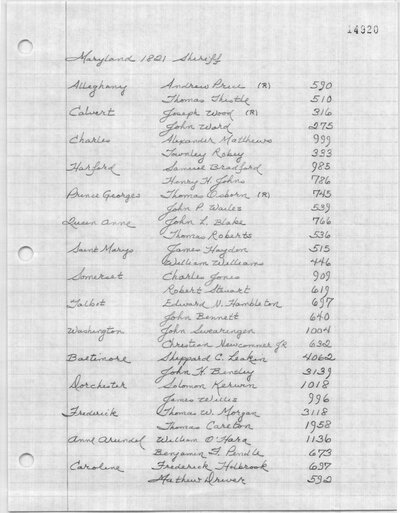 14920
Maryland 1821 Sheriff
Alleghany Andrew Price (R) 590
Thomas Thistle 510
Calvert Joseph Wood (R) 316
John Ward 275
Charles Alexander Matthews 999
Townley Robey 333
Harford Samuel Bradford 985
Henry H. Johns 786
Prince Georges Thomas Osborn (R) 745
John P. Wailes 539
Queen Anne John L. Blake 766
Thomas Roberts 536
Saint Marys James Haydon 515
William Williams 446
Somerset Charles Jones 909
Robert Stewart 619
Talbot Edward N. Hambleton 697
John Bennett 640
Washington John Swearingen 1004
Christian Newcomer Jr 632
Baltimore Sheppard C. Leakin 4062
John H. 3139
Dorchester Solomon Kerwin 1018
James Willis 996
Frederick Thomas W. Morgan 3118
Thomas Carlton 1958
Anne Arundel William O'Hara 1136
Benjamin F. Pindle 673
Caroline Frederick Holbrook 697
Mathew Driver 592